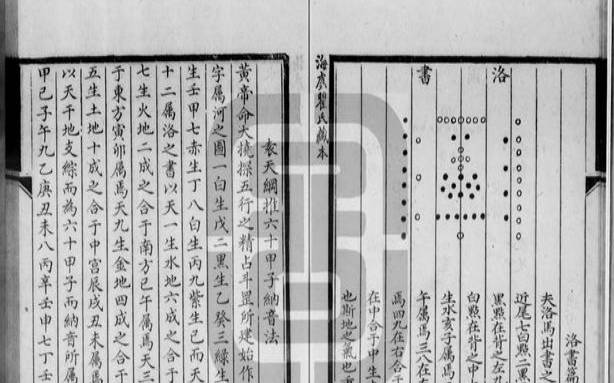 洛書
洛書
夫洛馬出書之
近尾七白點二黑
黑點在背之左九
白點在背之中
生水亥子屬爲
午屬爲三八在
爲四九在右合于
在中合于申生
也斯地之氣也
海虞瞿氏藏本
袁天綱推六十甲子納音法
黃帝命大撓探五行之精占斗罡所建始作
字屬河之圖一白生戊二黑生乙癸三綠生
生壬甲七赤生丁八白生丙九紫生己而天
十二屬洛之書以天一生水地六成之合于
七生火地二成之合于南方巳午屬爲天三
于東方寅卯屬爲天九生金地四成之合于
五生土地十成之合于中宮辰戌丑未屬爲
以天干地支綜而為六十甲子而納音所屬
甲己子午九乙庚丑未八丙辛壬申七丁壬